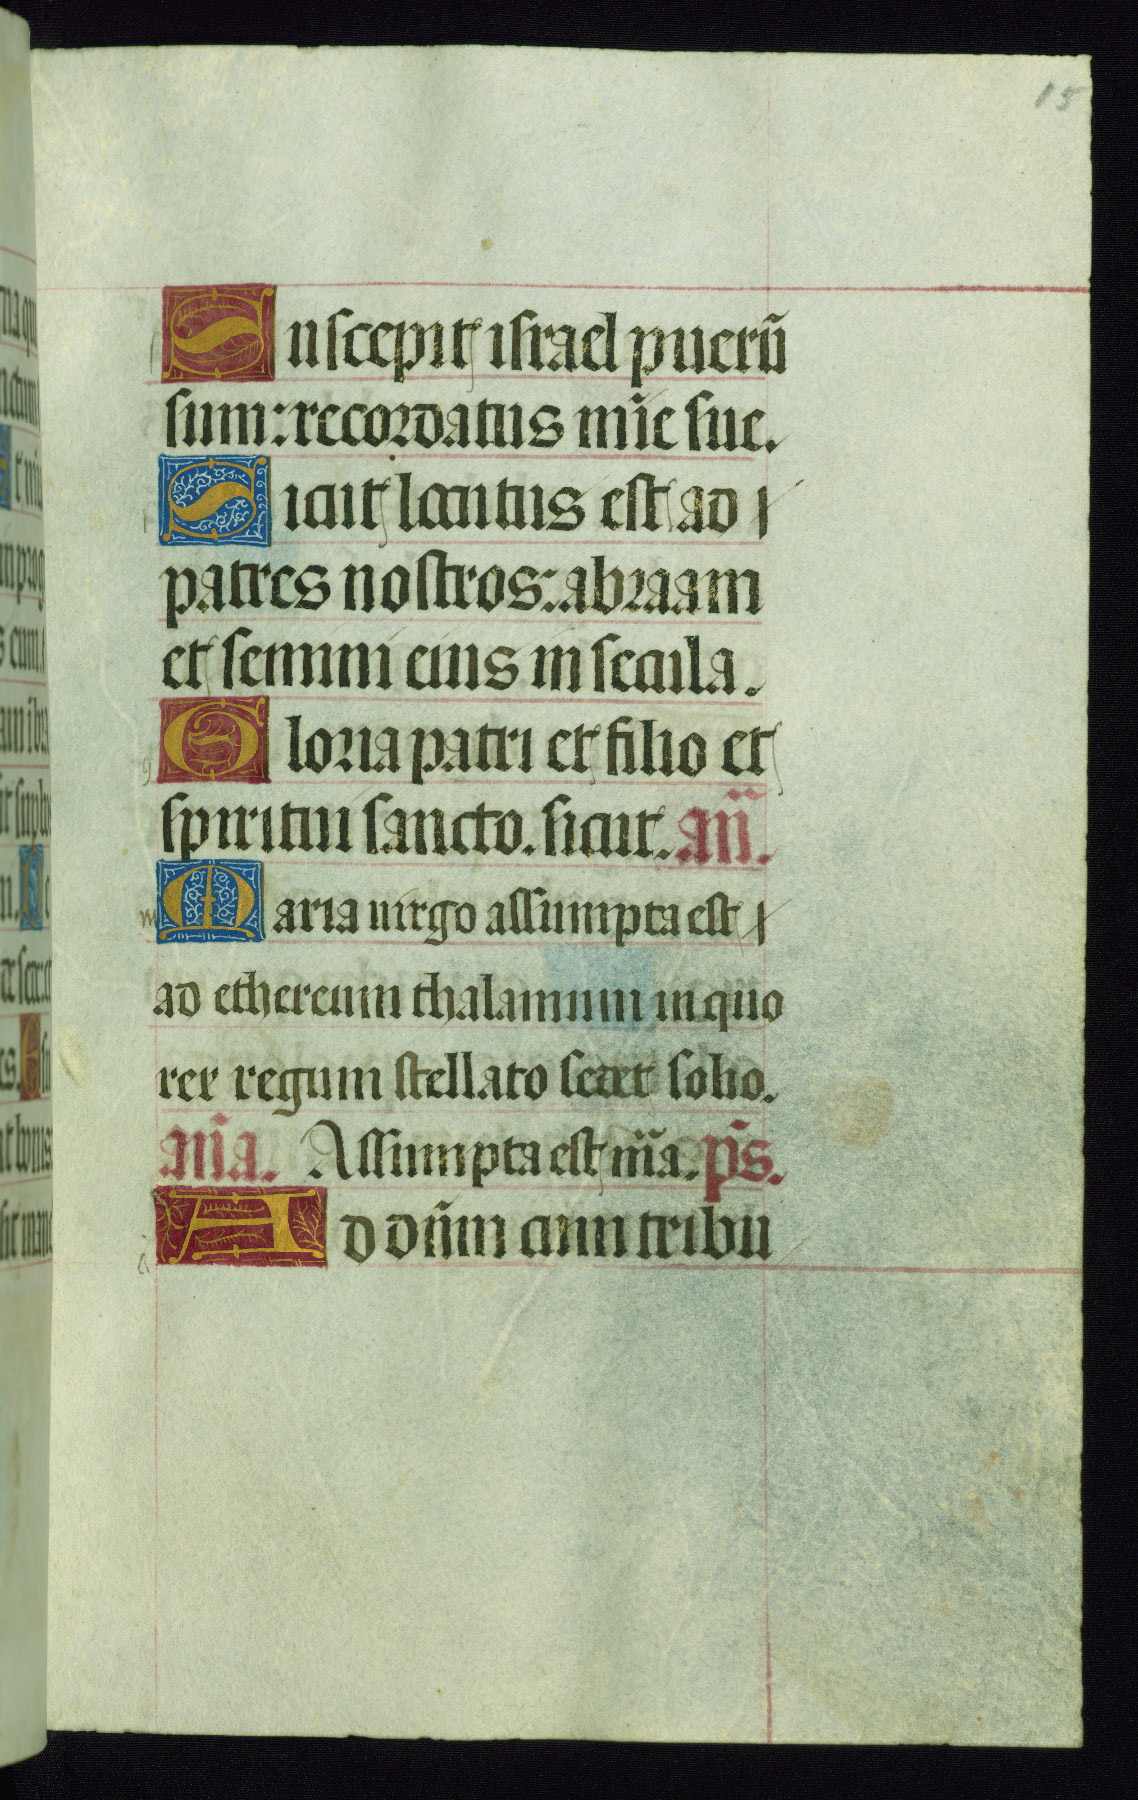 15
Suscepit israel puerū
sum: recordatus mīe sue.
Sicut locutus est ad
patres nostros: abraam
et semini eius in secula.
Gloria patri et filio et
spiritui sancto. sicut. añ.
Maria uirgo assumpta est
ad ethereum thalamum in quo
rex regum stellato sedet solio.
aña. Assumpta est mīa. p̄s.
Ad dn̄m cum tribu